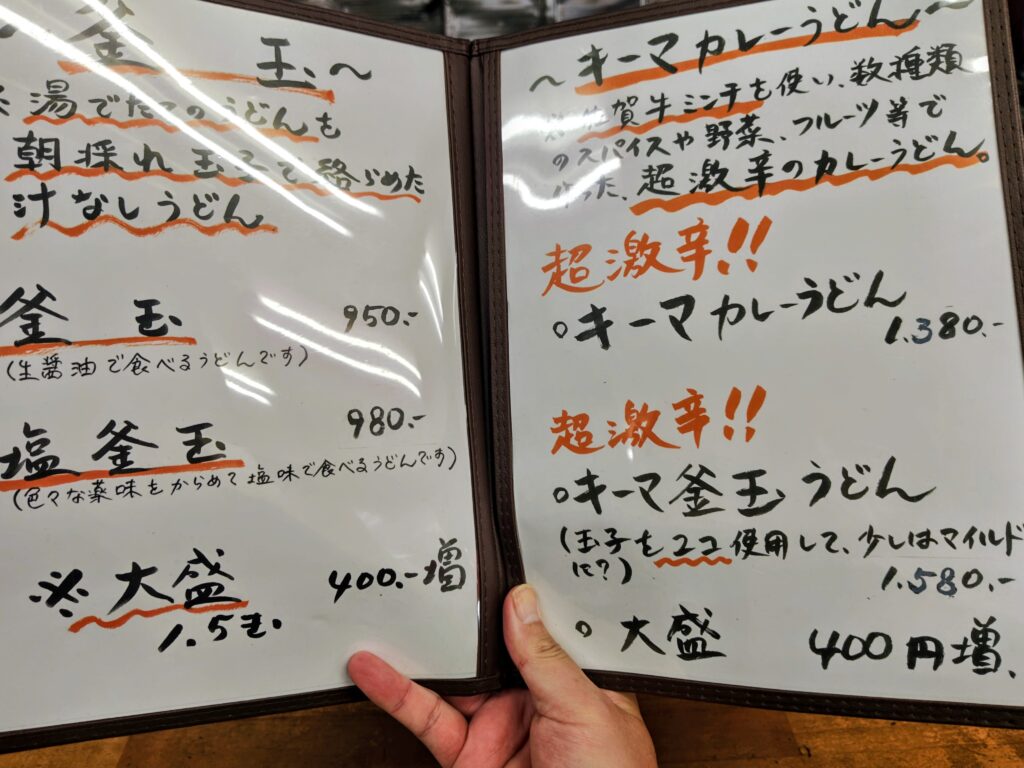 ～釜玉～
※湯でたてのうどんを
朝採れ玉子で絡らめた
汁なしうどん
釜玉 950.-
(生醤油で食べるうどんです)
塩釜玉 980.-
(色々な薬味をからめて塩味で食べるうどんです)
※大盛 400.-増
1.5玉
～キーマカレーうどん～
※佐賀牛ミンチを使い、数種類
のスパイスや野菜、フルーツ等で
作った、超激辛のカレーうどん。
超激辛!!
○キーマカレーうどん
1.380.-
超激辛!!
○キーマ釜玉うどん
(玉子を2コ使用して、少しはマイルド
に?)
1.580.-
○大盛 400円増、